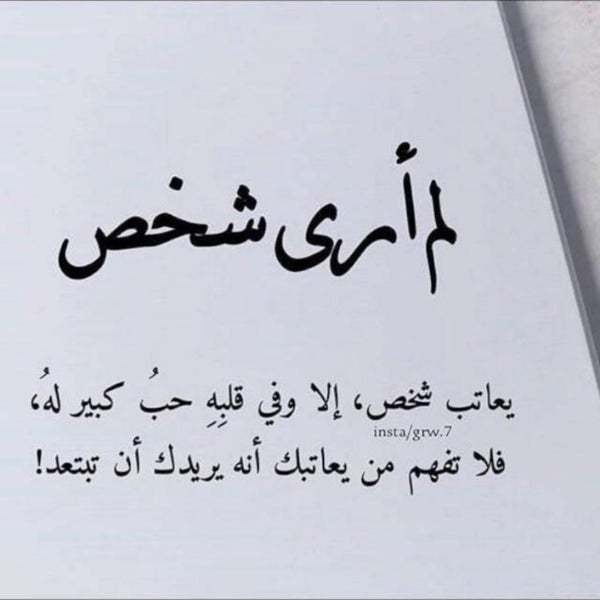 لم أرى شخص
يعاتب شخص، إلا وفي قلبِهِ حبُ كبير لهُ،
insta/grw.7
فلا تفهم من يعاتبك أنه يريدك أن تبتعد!